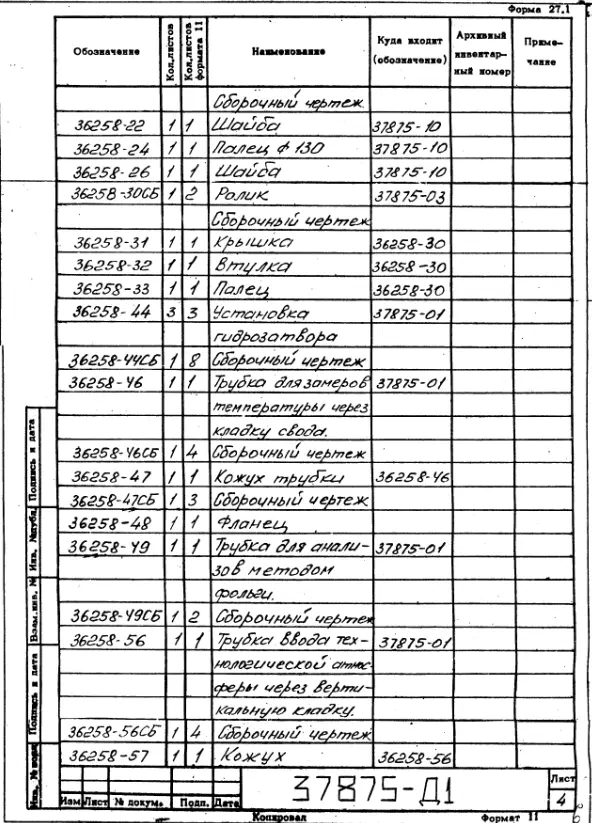 Форма 27.1
Обозначение Кол.листов Кол.листов формата 11 Наименование Куда входит (обозначение) Архивный инвентарный номер Примечание
Сборочный чертеж
36258-22 1 1 Шайба 37875-10
36258-24 1 1 Палец ф 130 37875-10
36258-26 1 1 Шайба 37875-10
36258-30СБ 1 2 Ролик 37875-03
Сборочный чертеж
36258-31 1 1 Крышка 36258-30
36258-32 1 1 Втулка 36258-30
36258-33 1 1 Палец 36258-30
36258-44 3 3 Установка 37875-01
гидрозатвора
36258-44СБ 1 8 Сборочный чертеж
36258-46 1 1 Трубка для замеров 37875-01
температуры через
кладку свода.
36258-46СБ 1 4 Сборочный чертеж
36258-47 1 1 Кожух трубки 36258-46
36258-47СБ 1 3 Сборочный чертеж
36258-48 1 1 Фланец
36258-49 1 1 Трубка для анали- 37875-01
зов методом
фольги.
36258-49СБ 1 2 Сборочный чертеж
36258-56 1 1 Трубка ввода тех- 37875-01
нологической атмос-
феры через верти-
кальную кладку.
36258-56СБ 1 4 Сборочный чертеж
36258-57 1 1 Кожух 36258-56
Инв. № подл. Подпись и дата Взам.инв. № Инв. №дубл. Подпись и дата
Изм Лист № докум. Подп. Дата
37875-Д1
Лист
4
Копировал Формат 11